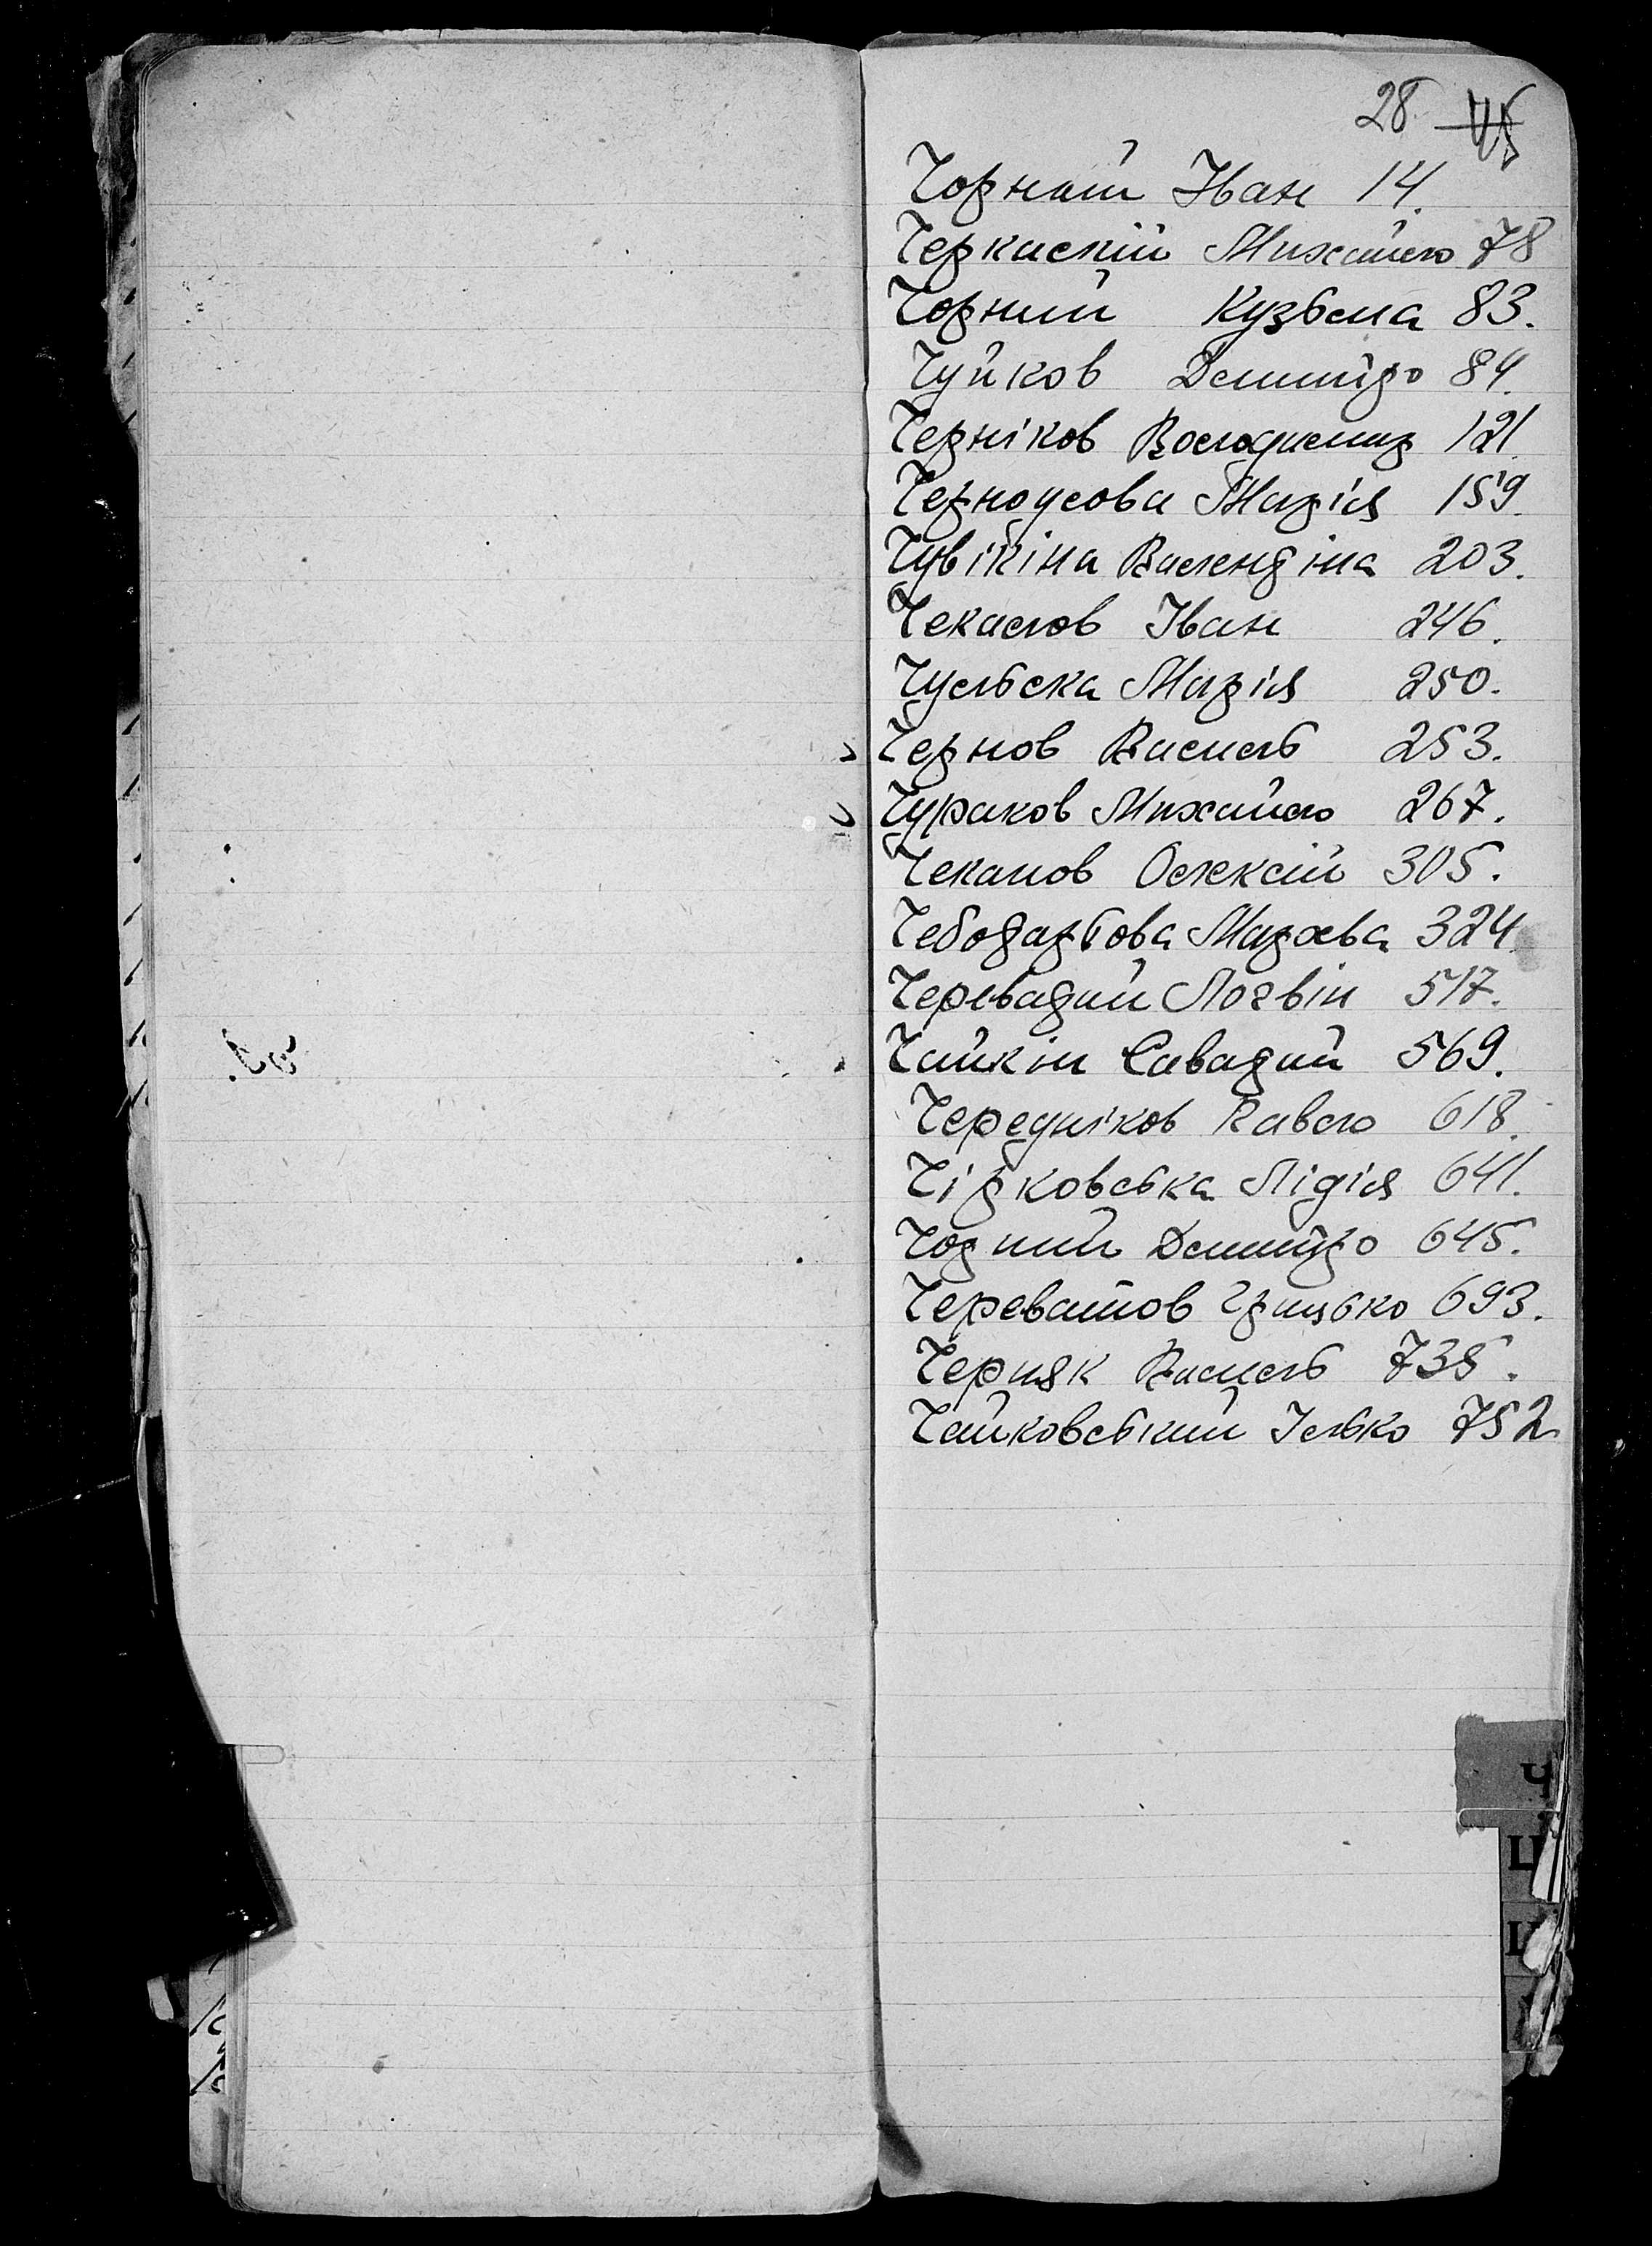 28 45
Чорний Іван 14.
Черкаскій Михайло 78
Чорний Кузьма 83.
Чуйков Дмитро 84.
Черніков Володимир 121.
Черноусова Марія 159.
Чувікіна Валентіна 203.
Чекалов Іван 246.
Чульска Марія 250.
Чернов Василь 253.
Чураков Михайло 267.
Чеканов Олексій 305.
Чеботарьова 324
Череватий Логвін 517.
Чайкін Саватий 569.
Чередніков Павло 618.
Чірковська Лідія 641.
Чорний Дмитро 645.
Череватов Грицько 693.
Черняк Василь 735.
Чайковський Ілько 752
Ч